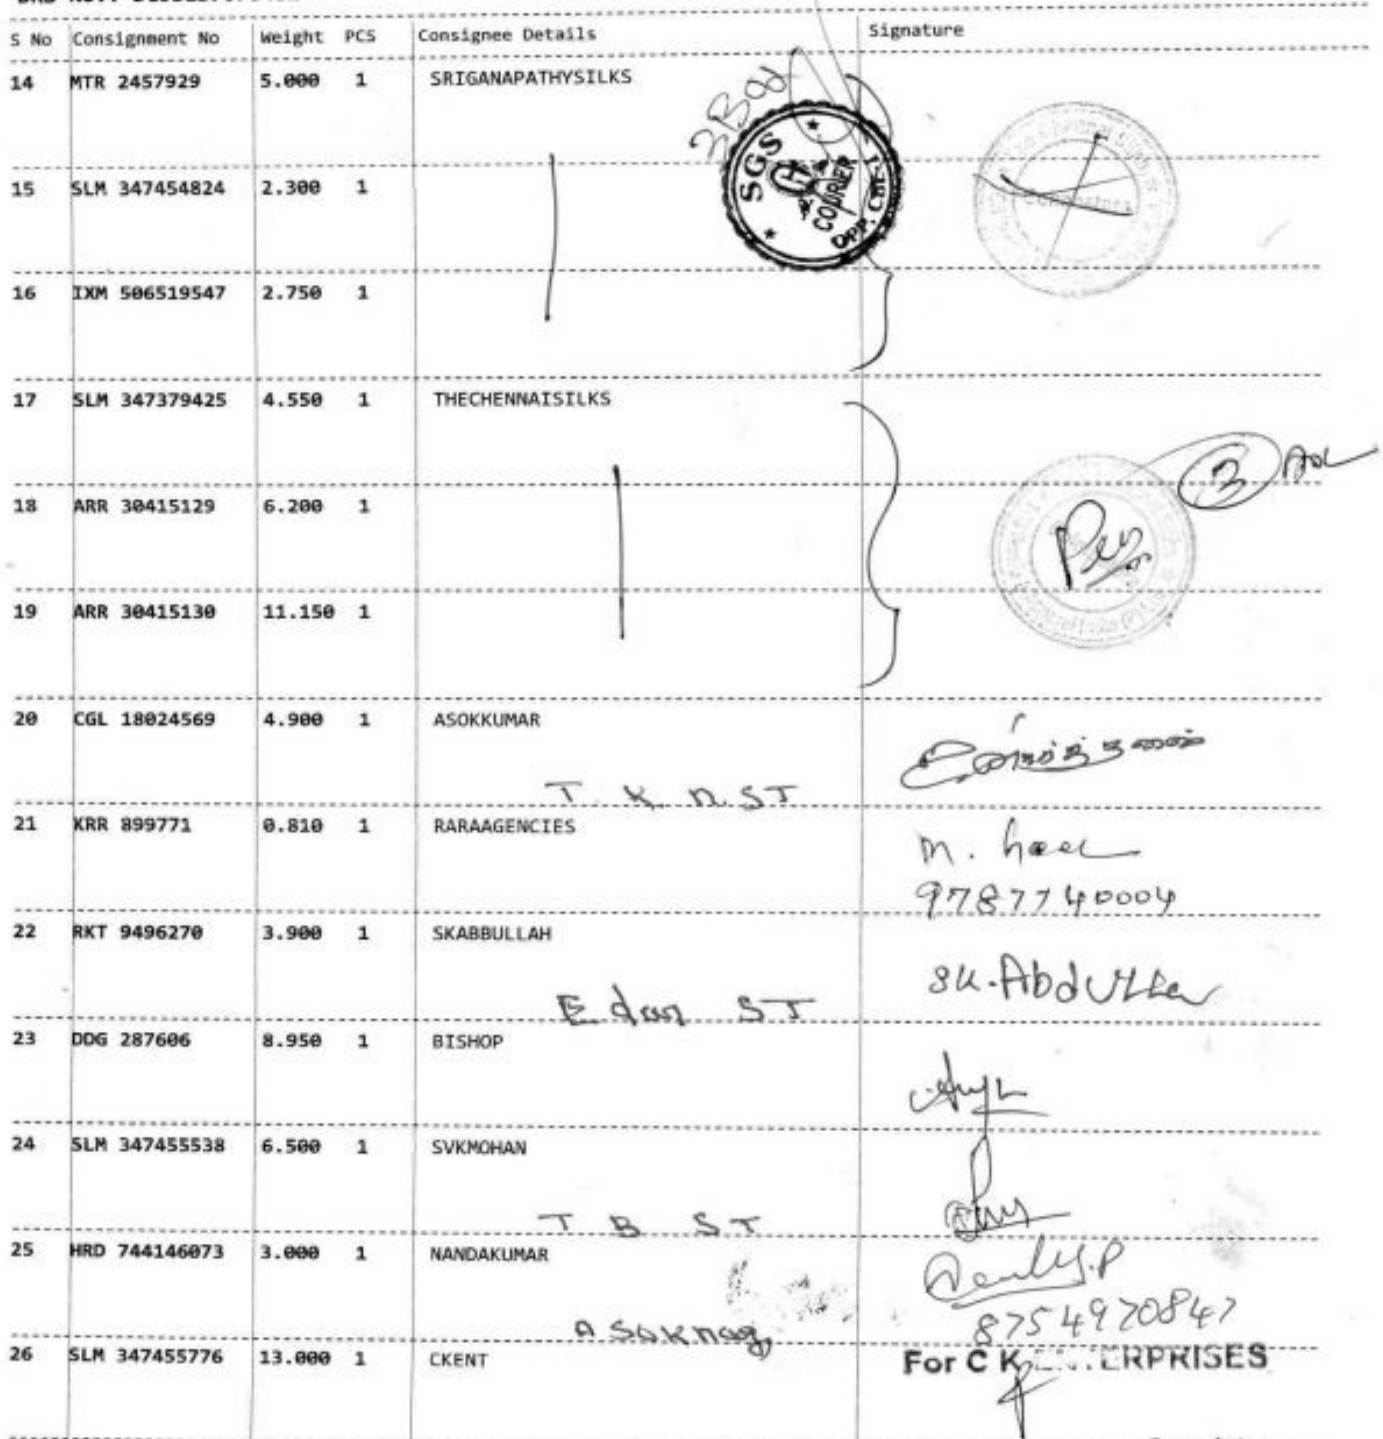 S No Consignment No Weight PCS Consignee Details Signature
14 MTR 2457929 5.000 1 SRIGANAPATHYSILKS
SGS COURIER
15 SLM 347454824 2.300 1
16 IXM 506519547 2.750 1
17 SLM 347379425 4.550 1 THECHENNAISILKS
3
18 ARR 30415129 6.200 1
19 ARR 30415130 11.150 1
20 CGL 18024569 4.900 1 ASOKKUMAR
T. K. N. ST
21 KRR 899771 0.810 1 RARAAGENCIES
9787740004
22 RKT 9496270 3.900 1 SKABBULLAH
SK. Abdulla
Edan ST
23 DDG 287606 8.950 1 BISHOP
24 SLM 347455538 6.500 1 SVKMOHAN
T B ST
25 HRD 744146073 3.000 1 NANDAKUMAR
8754970847
Asoknag
26 SLM 347455776 13.000 1 CKENT For C K ENTERPRISES